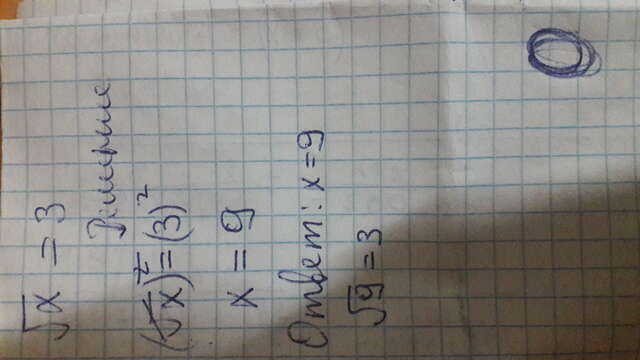 √x = 3
Решение
(√x)² = (3)²
x = 9
Ответ: x = 9
√9 = 3